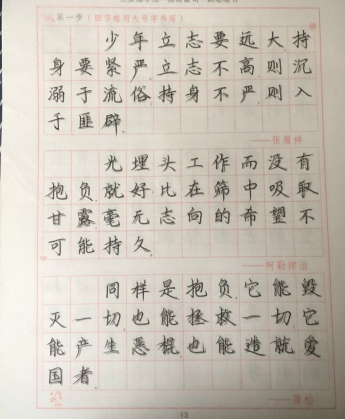 第一步（田字格用大号字书写）
少年立志要远大持
身要紧严立志不高则沉
溺于流俗持身不严则入
于匪辟
——张履祥
光埋头工作而没有
抱负就好比在筛中吸取
甘露毫无志向的希望不
可能持久
——柯勒律治
同样是抱负它能毁
灭一切也能拯救一切它
能产生恶棍也能造就爱
国者
13